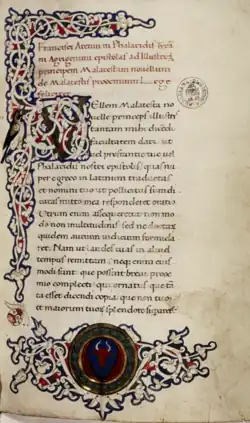 Francisci Aretini in Phalaridis
in epistolas ad Illustrem
principem Malatestam novellum
de Malatestis prooemium Lege
feliciter
Vellem Malatesta no
velle princeps illustris
tantam mihi dicendi
facultatem dari ut
vel prestantie tue vel
Phalaridis nostri epistolis quas nu
per e greco in latinum traductas
et nomini tuo
mea responderet oratio
enim assequerer ut non mo
do non multitudinis sed ne doctorum
quidem aurium iudicium formida
rem. Nam ut laudes tuas in aliud
tempus remittam neque enim eius
modi sunt que possint brevi prooe
mio complecti quis ornatus que tan
ta esset dicendi copia que non tuo
et maiorum tuorum splendore superare